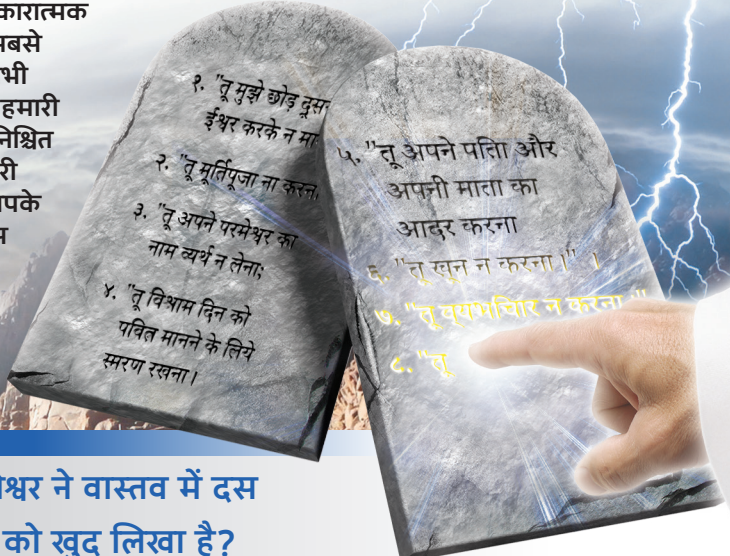 कारात्मक
भी
हमारी
निश्चित
री
पके
१. "तू मुझे छोड़
ईश्वर करके न
२. "तू मूर्तिपूजा ना
३. "तू अपने परमेश्वर का
नाम व्यर्थ न लेना;
४. "तू विश्राम दिन को
पवित्र मानने के लिये
स्मरण रखना।
५. "तू अपने पिता और
अपनी माता का
आदर करना
६. "तू खून न करना।" ।
७. "तू व्यभिचार न करना
८. "तू
ने वास्तव में दस
को खुद लिखा है?